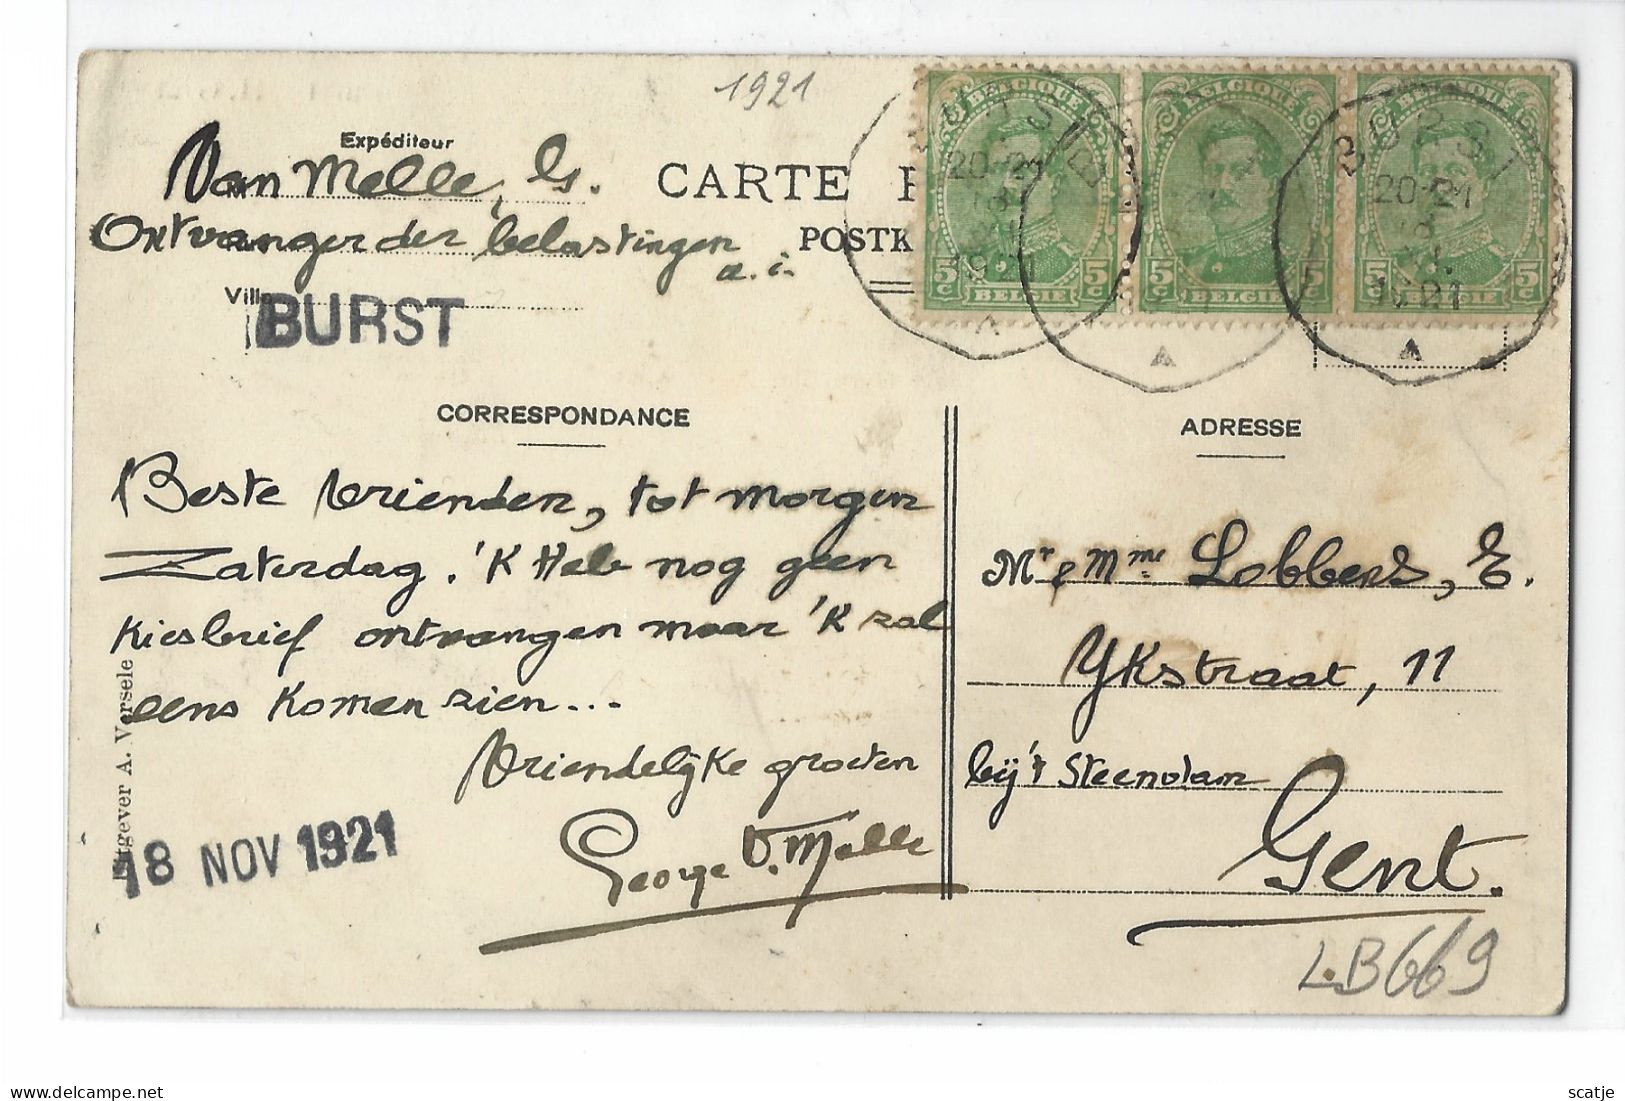 1921
Expéditeur
Van Melle, G.
CARTE P
Ontvanger der belastingen
a. i.
POSTK
Ville
BURST
BELGIQUE BELGIQUE BELGIQUE
5c 5c 5c 5c 5c 5c
BELGIE BELGIE BELGIE
BURST
20-21
18
1921
BURST
20-21
18
XI.
1921
CORRESPONDANCE
Beste Vrienden, tot morgen
Zaterdag. 'K Heb nog geen
Kiesbrief ontvangen maar 'K zal
eens Komen zien...
Vriendelijke groeten
George V. Melle
18 NOV 1921
Uitgever A. Versele
ADRESSE
Mr & Mme Lobbens, E.
Ykstraat, 11
bij 't Steendam
Gent.
LB669
scatje